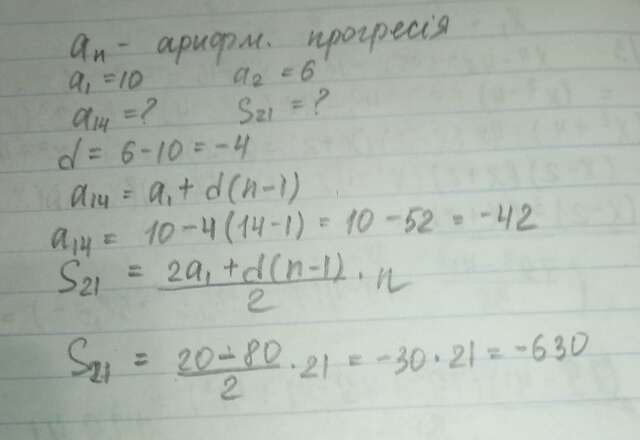 aₙ - арифм. прогресія
a₁ = 10 a₂ = 6
a₁₄ = ? S₂₁ = ?
d = 6-10 = -4
a₁₄ = a₁ + d(n-1)
a₁₄ = 10-4(14-1) = 10-52 = -42
S₂₁ = (2a₁ + d(n-1))/2 · n
S₂₁ = (20-80)/2 · 21 = -30·21 = -630